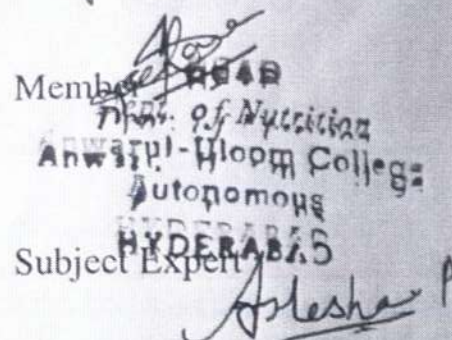 Member HEAD
Dept. of Nutrition
Anwarul-Uloom College
Autonomous
HYDERABAD
Subject Expert
Aslesha